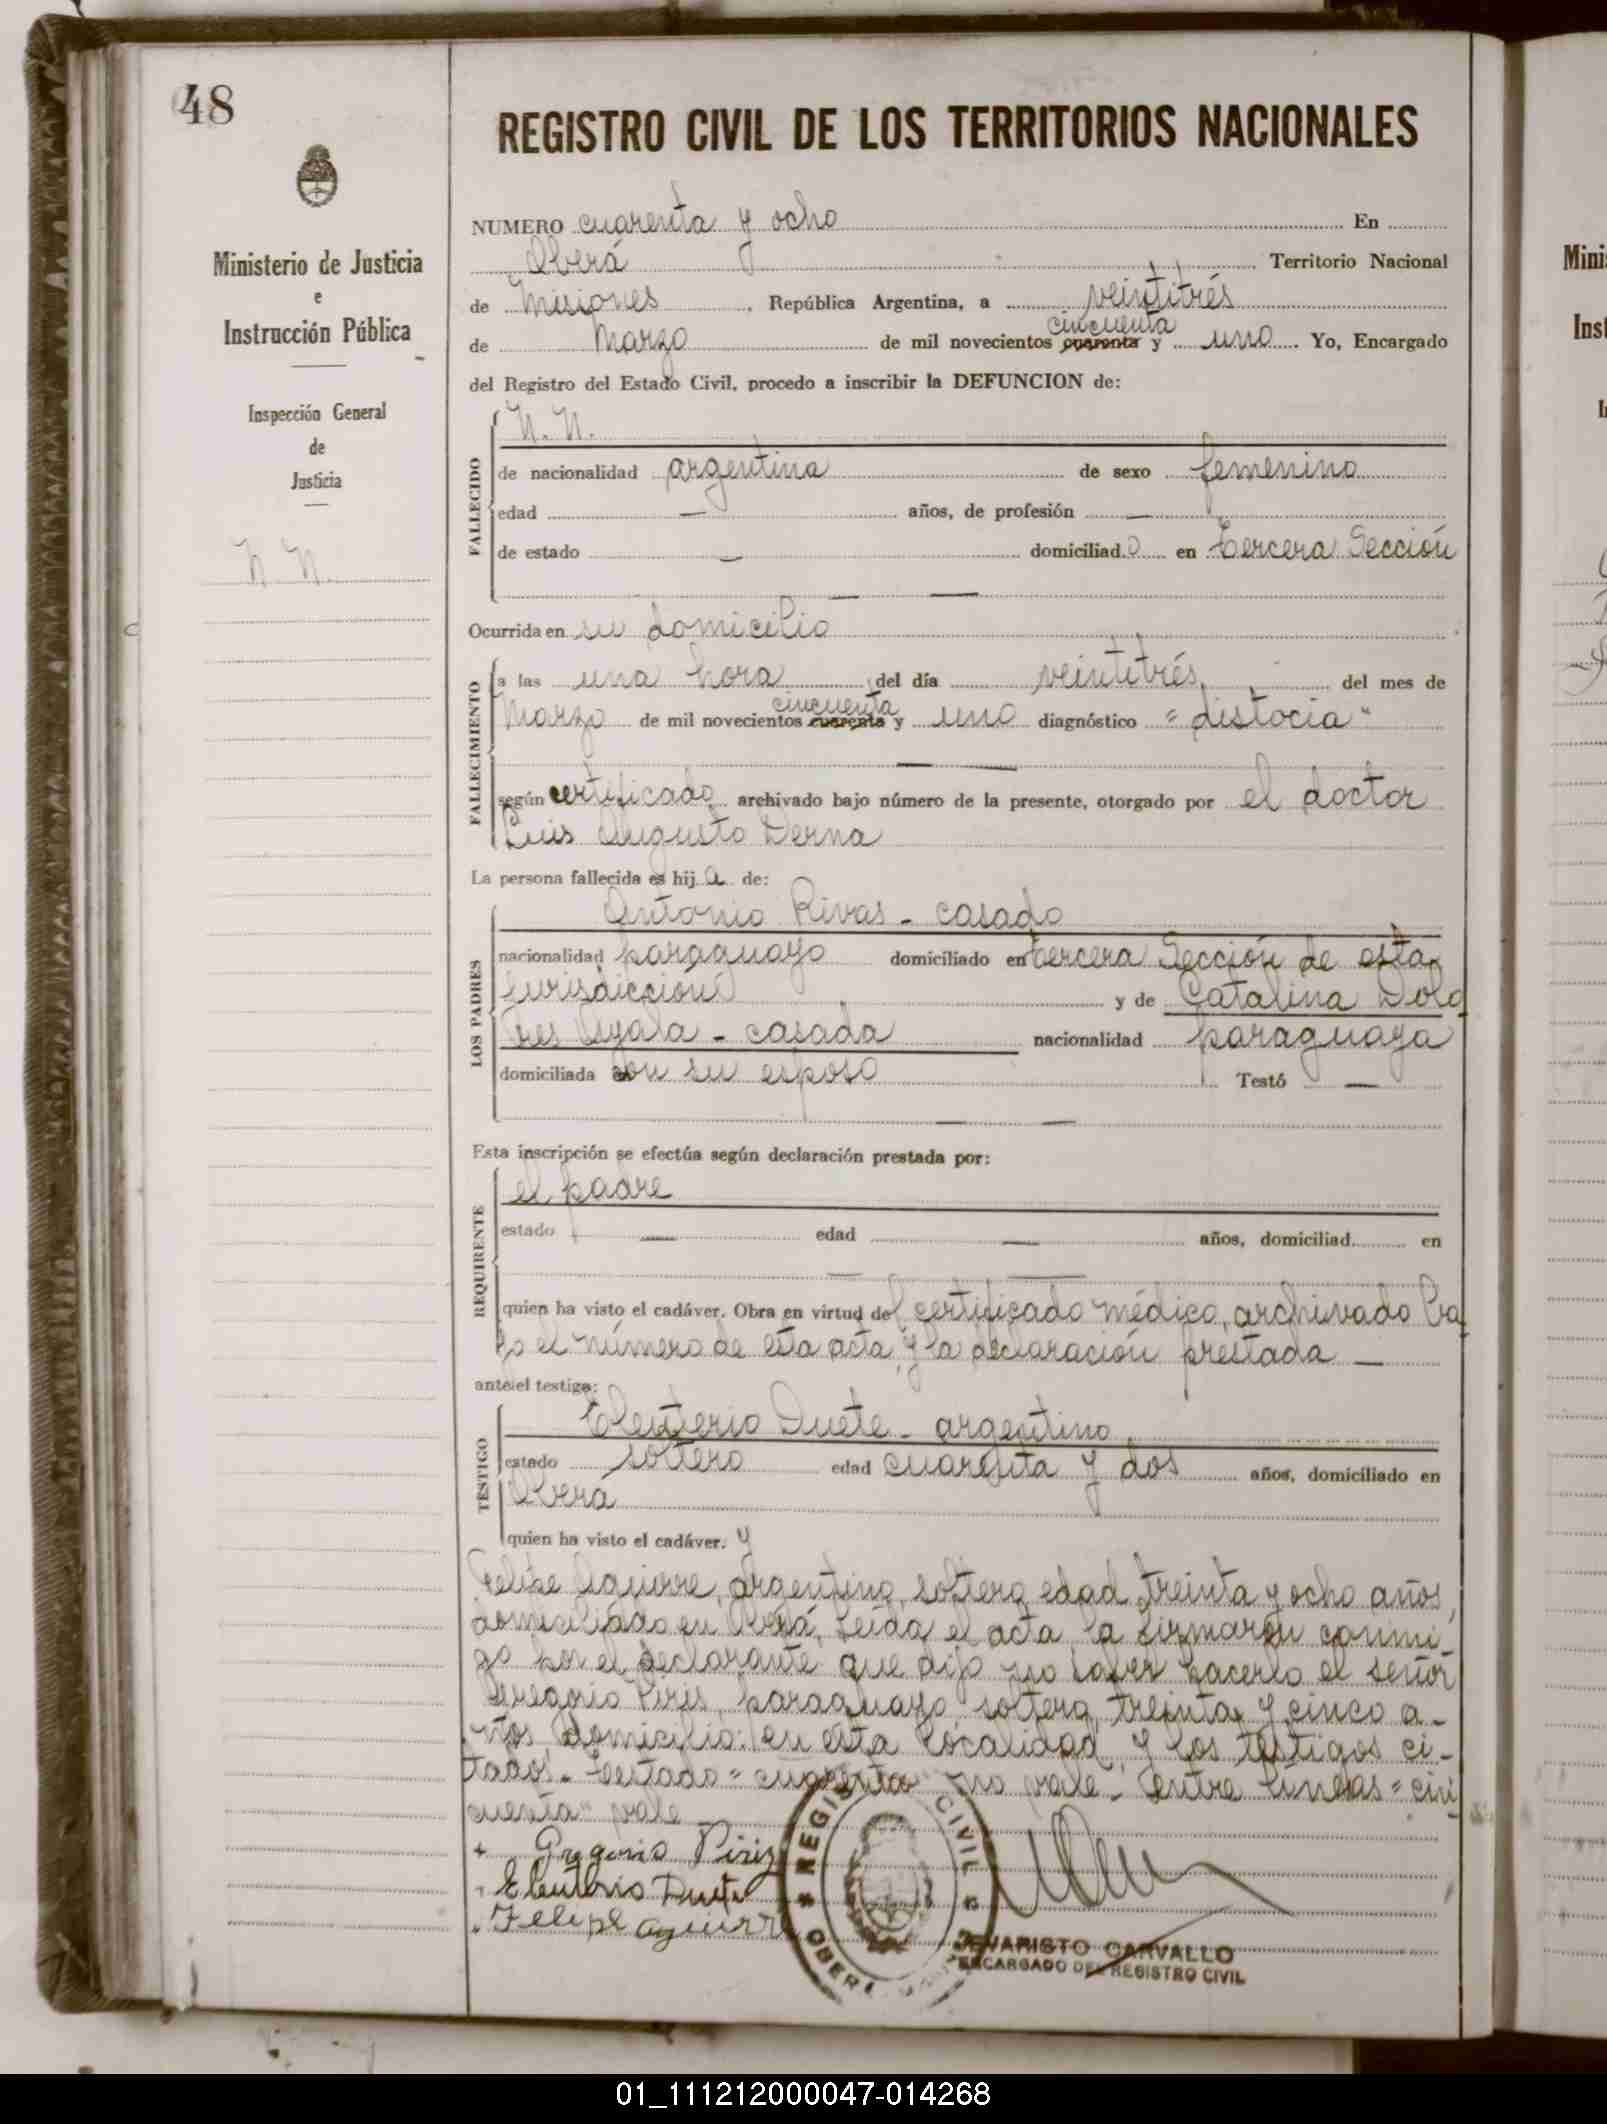 48
REGISTRO CIVIL DE LOS TERRITORIOS NACIONALES
Ministerio de Justicia
e
Instrucción Pública
Inspección General
de
Justicia
N. N.
NUMERO cuarenta y ocho En
Oberá Territorio Nacional
de Misiones, República Argentina, a veintitrés
cincuenta
de Marzo de mil novecientos cuarenta y uno Yo, Encargado
del Registro del Estado Civil, procedo a inscribir la DEFUNCION de:
FALLECIDO
N. N.
de nacionalidad argentina de sexo femenino
edad — años, de profesión —
de estado — domiciliad o en tercera Sección
— —
Ocurrida en su domicilio
FALLECIMIENTO
a las una hora del día veintitrés del mes de
cincuenta
Marzo de mil novecientos cuarenta y uno diagnóstico "distocia"
— —
según certificado archivado bajo número de la presente, otorgado por el doctor
Luis Augusto Derna
La persona fallecida es hij a de:
LOS PADRES
Antonio Rivas - casado
nacionalidad paraguayo domiciliado en tercera Sección de esta
jurisdicción y de Catalina Dolo
res Ayala - casada nacionalidad paraguaya
domiciliada con su esposo Testó —
— —
Esta inscripción se efectúa según declaración prestada por:
REQUIRENTE
el padre
estado — edad — años, domiciliad en
— —
quien ha visto el cadáver. Obra en virtud del certificado médico, archivado ba
jo el número de esta acta y la declaración prestada —
ante el testigo:
TESTIGO
Eleuterio Duete - argentino
estado soltero edad cuarenta y dos años, domiciliado en
Oberá
quien ha visto el cadáver. y
Felipe Aguirre, argentino, soltero, edad treinta y ocho años,
domiciliado en Oberá. Leída el acta la firmaron conmi-
go por el declarante que dijo no saber hacerlo el señor
Gregorio Piris, paraguayo, soltero, treinta y cinco a-
ños domicilio: en esta localidad y los testigos ci-
tados. Testado = cuarenta no vale - Entre líneas = cin
cuenta" vale
Gregorio Piriz
Eleuterio Duete
Felipe Aguirre
REGIS CIVIL
OBERA
EVARISTO CARVALLO
ENCARGADO DEL REGISTRO CIVIL
Minis
Inst
01_111212000047-014268